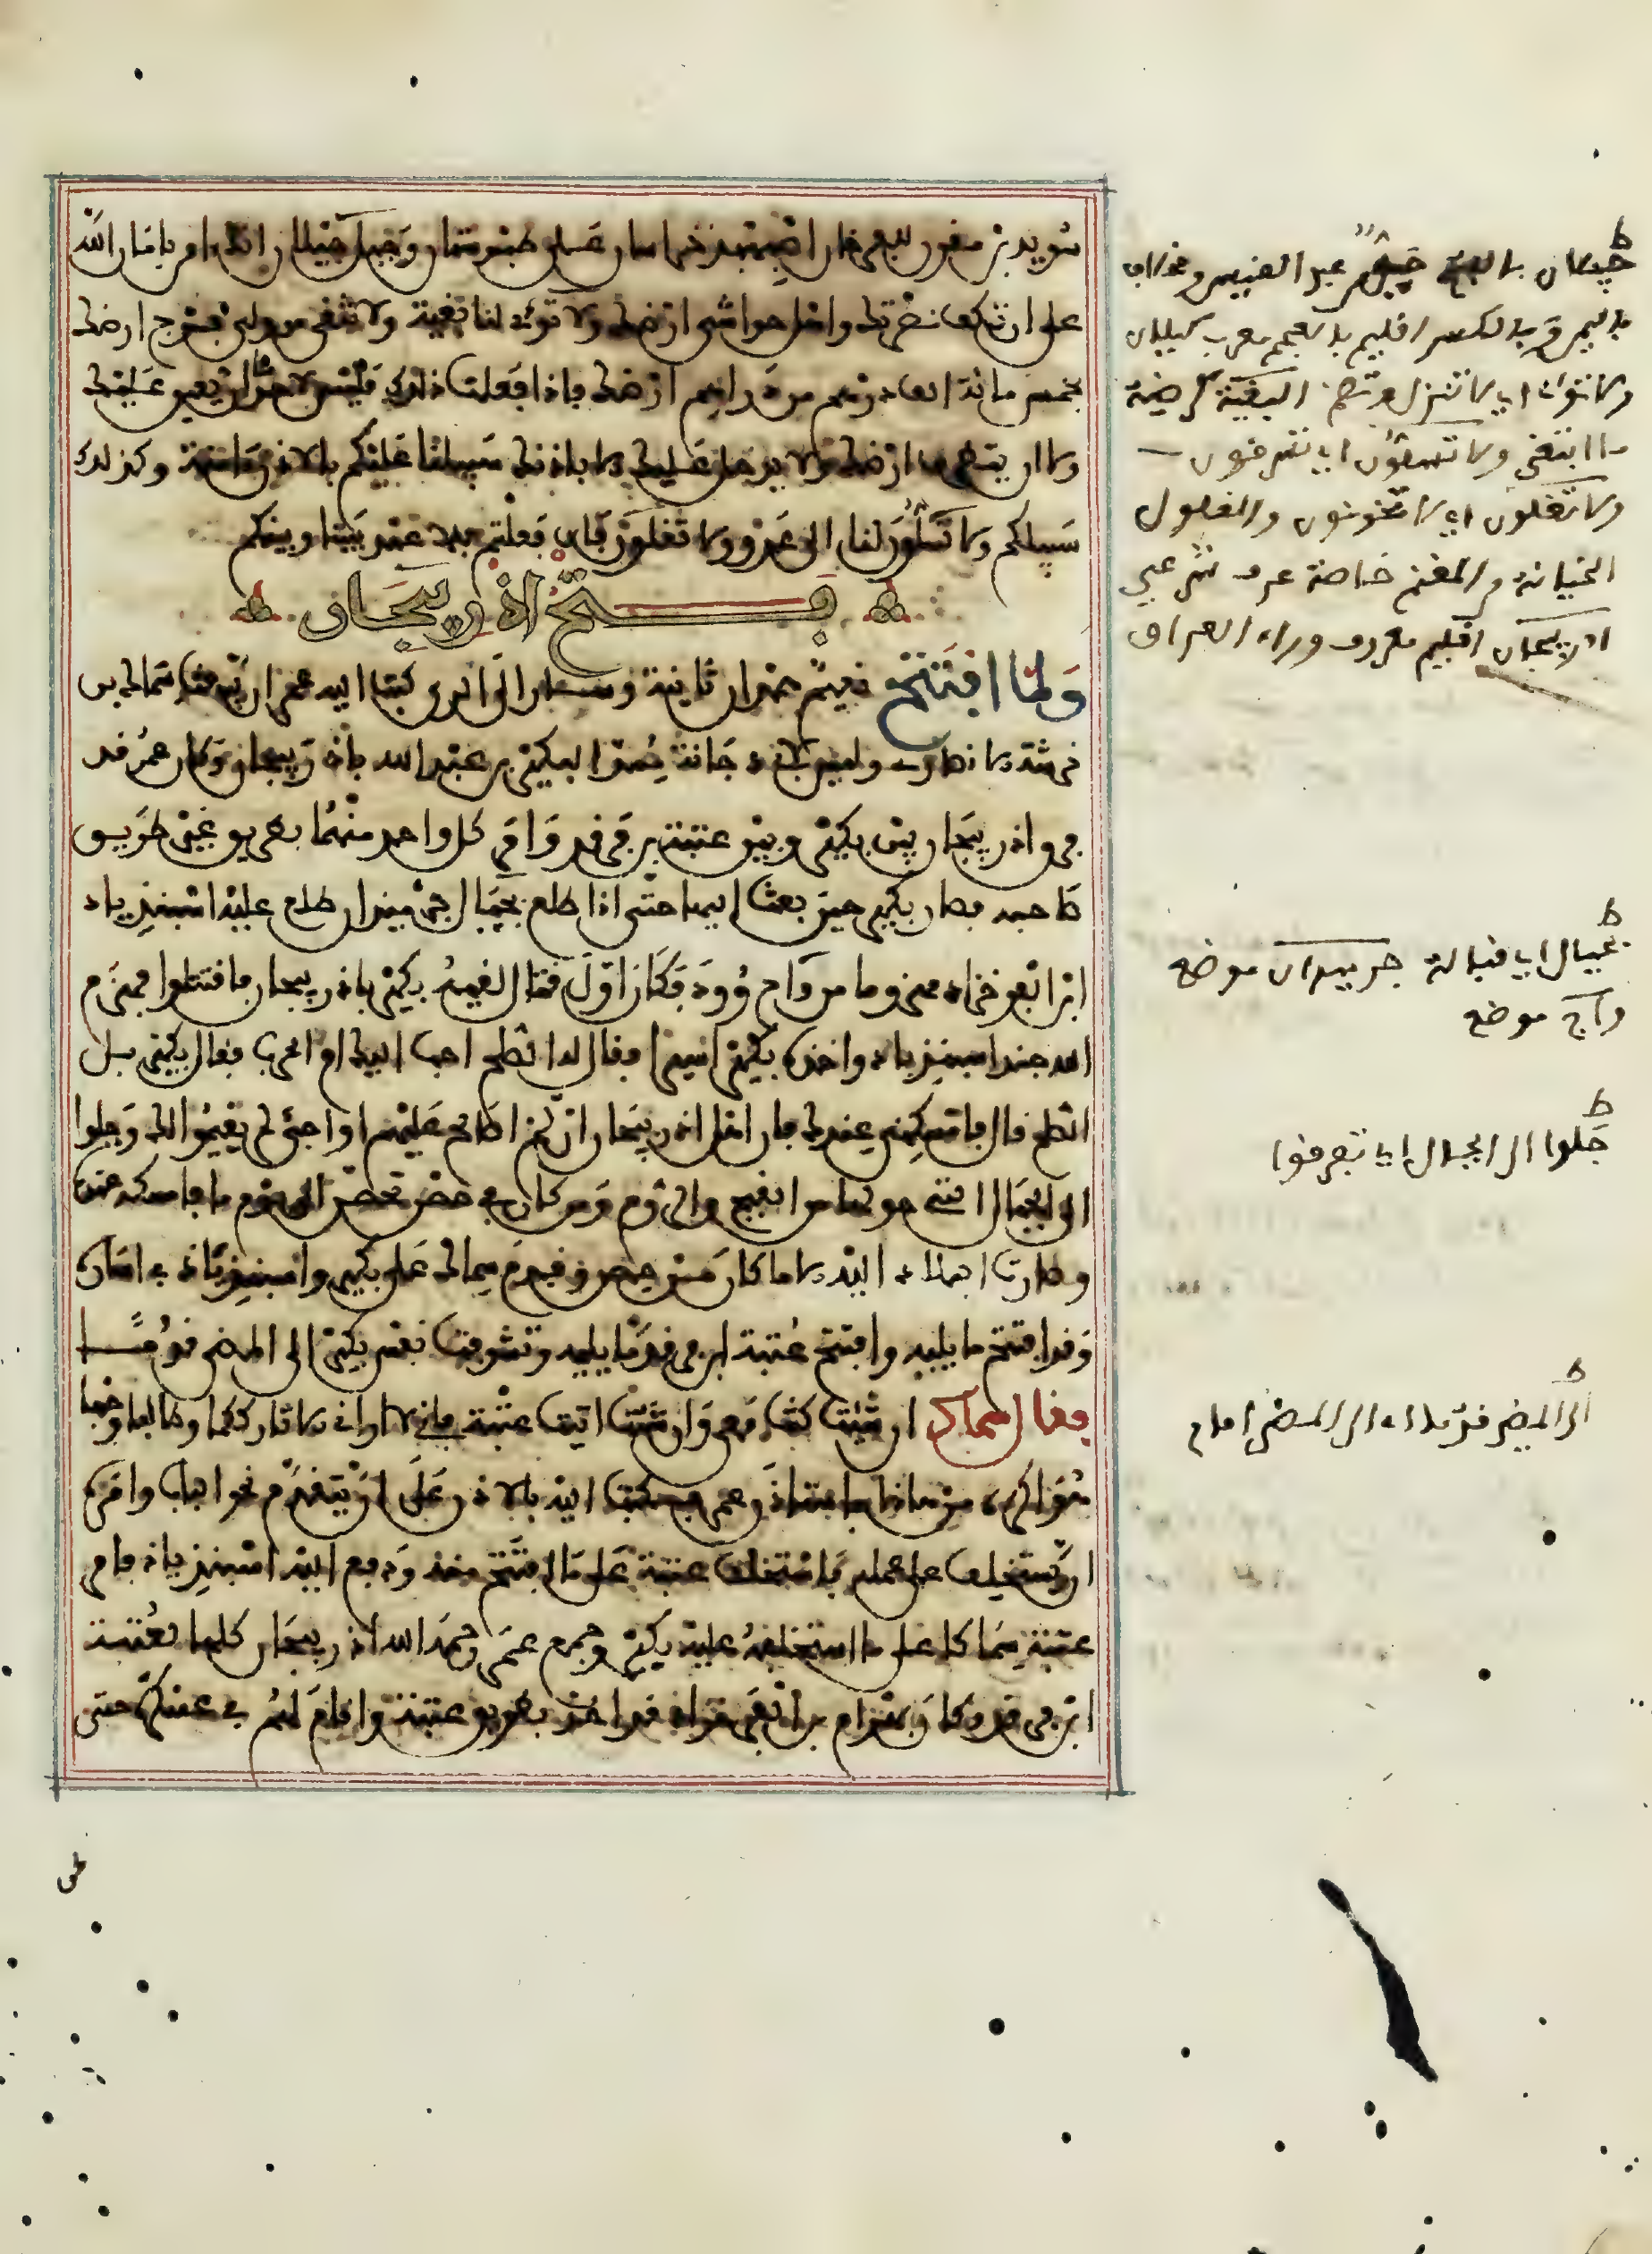 سويد بن مقرن للفرخان اصبهبذ خراسان على طبرستان وجبل جيلان انك امن بامان الله
على ان تكف نصرتك واهل حواشي ارضك ولا تؤوي لنا بغية ولا تتقى من ولي فرج ارضك
بخمس مائة الف درهم من دراهم ارضك فاذا فعلت ذلك فليس لاحد ان يغير عليك
ولا ان يتطرق ارضك ولا يدخل عليك الا باذنك سبيلنا عليكم بالاذن ءامنة وكذلك
سبيلكم ولا تسلون لنا الى عدو ولا تغلون فان فعلتم فلا عهد بيننا وبينكم
فتح اذربيجان
ولما افتتح نعيم همدان ثانية وسار الى الري كتب اليه عمر ان يبعث سماك بن
خرشة الانصاري وليس بابي دجانة ممدا لبكير بن عبد الله باذربيجان وكان عمر قد
فرق اذربيجان بين بكير وبين عتبة بن فرقد وامر كل واحد منهما بطريق غير طريق
صاحبه فصار بكير حين بعث اليها حتى اذا طلع بحيال جرميذان طلع عليه اسبنذياذ
ابن الفرخزاد مهزوما من واج روذ فكان اول قتال لقيه بكير باذربيجان فاقتتلوا فهزم
الله جند اسبنذياذ واخذه بكير اسيرا فقال له الصلح احب اليك ام الحرب فقال بكير بل
الصلح قال فامسكني عندك فان اهل اذربيجان ان لم اصالح عليهم او اجئ لم يقيموا لك وجلوا
الى الجبال التي حولها من القبج والروم ومن كان في حصن تحصن الى يوم ما فامسكه عنده
وصارت البلاد اليه الا ما كان من حصن وقدم سماك على بكير واسبنذياذ في اساره
وقد افتتح ما يليه وافتتح عتبة ابن فرقد ما يليه وتشوفت نفس بكير الى المضي قدما
فقال لسماك ان شئت كنت معي وان شئت اتيت عتبة فاني لا اراني الا تارككما وطالبا وجها
هو اكره من هذا فاستاذن عمر فكتب اليه بالاذن على ان يتقدم نحو الباب وامره
ان يستخلف على عمله فاستخلف عتبة على ما افتتح منه ودفع اليه اسبنذياذ فامر
عتبة سماكا على ما استخلفه عليه بكير وجمع عمر رحمه الله اذربيجان كلها لعتبة
ابن فرقد وكان بهرام بن الفرخزاذ قد اخذ بطريق عتبة واقام لهم في عسكره حتى
جيلان بالفتح من عبد القيس
بالجيم وبالكسر اقليم بالعجم معرب كيلان
ولا تؤوي اي لا تنزل وتضم البغية
ما ابتغي ولا تسلون اي تسرقون
ولا تغلون اي لا تخونون والغلول
الخيانة والمغنم خاصة عرف شرعي
اذربيجان اقليم معروف وراء العراق
بحيال اي قبالة جرميذان موضع
واج موضع
جلوا الى الجبال اي تفرقوا
الى المضي قدما اي الى المضي امام